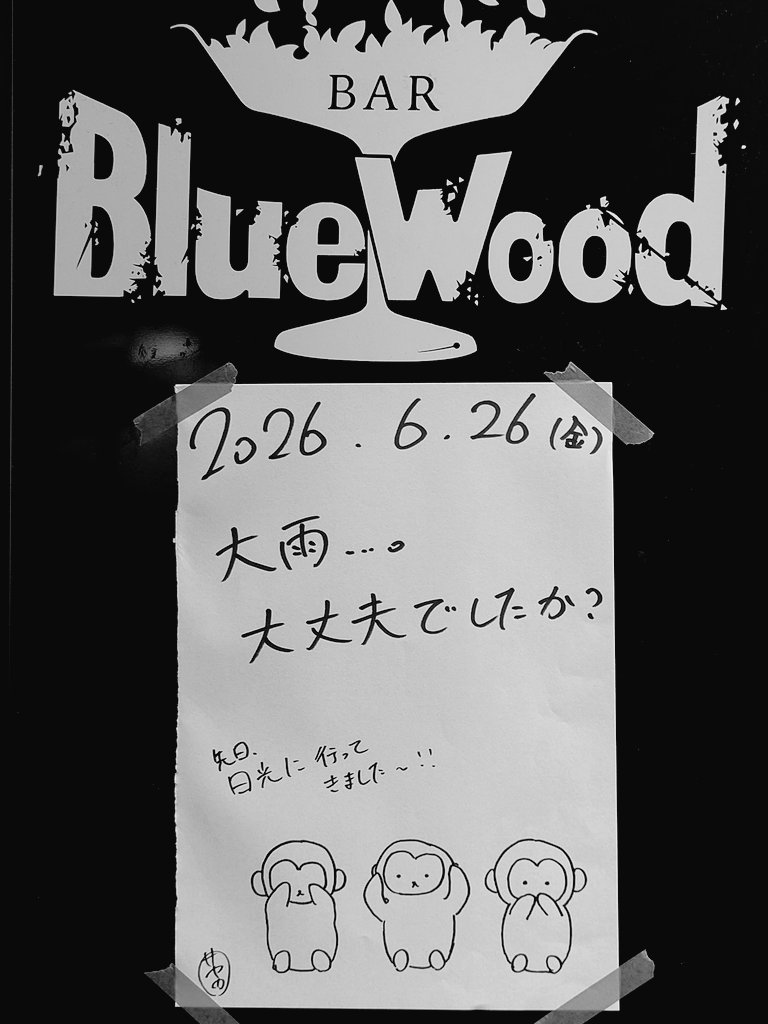 BAR
BlueWood
2026.6.26(金)
大雨...。
大丈夫でしたか?
先日、
日光に行って
きました~!!